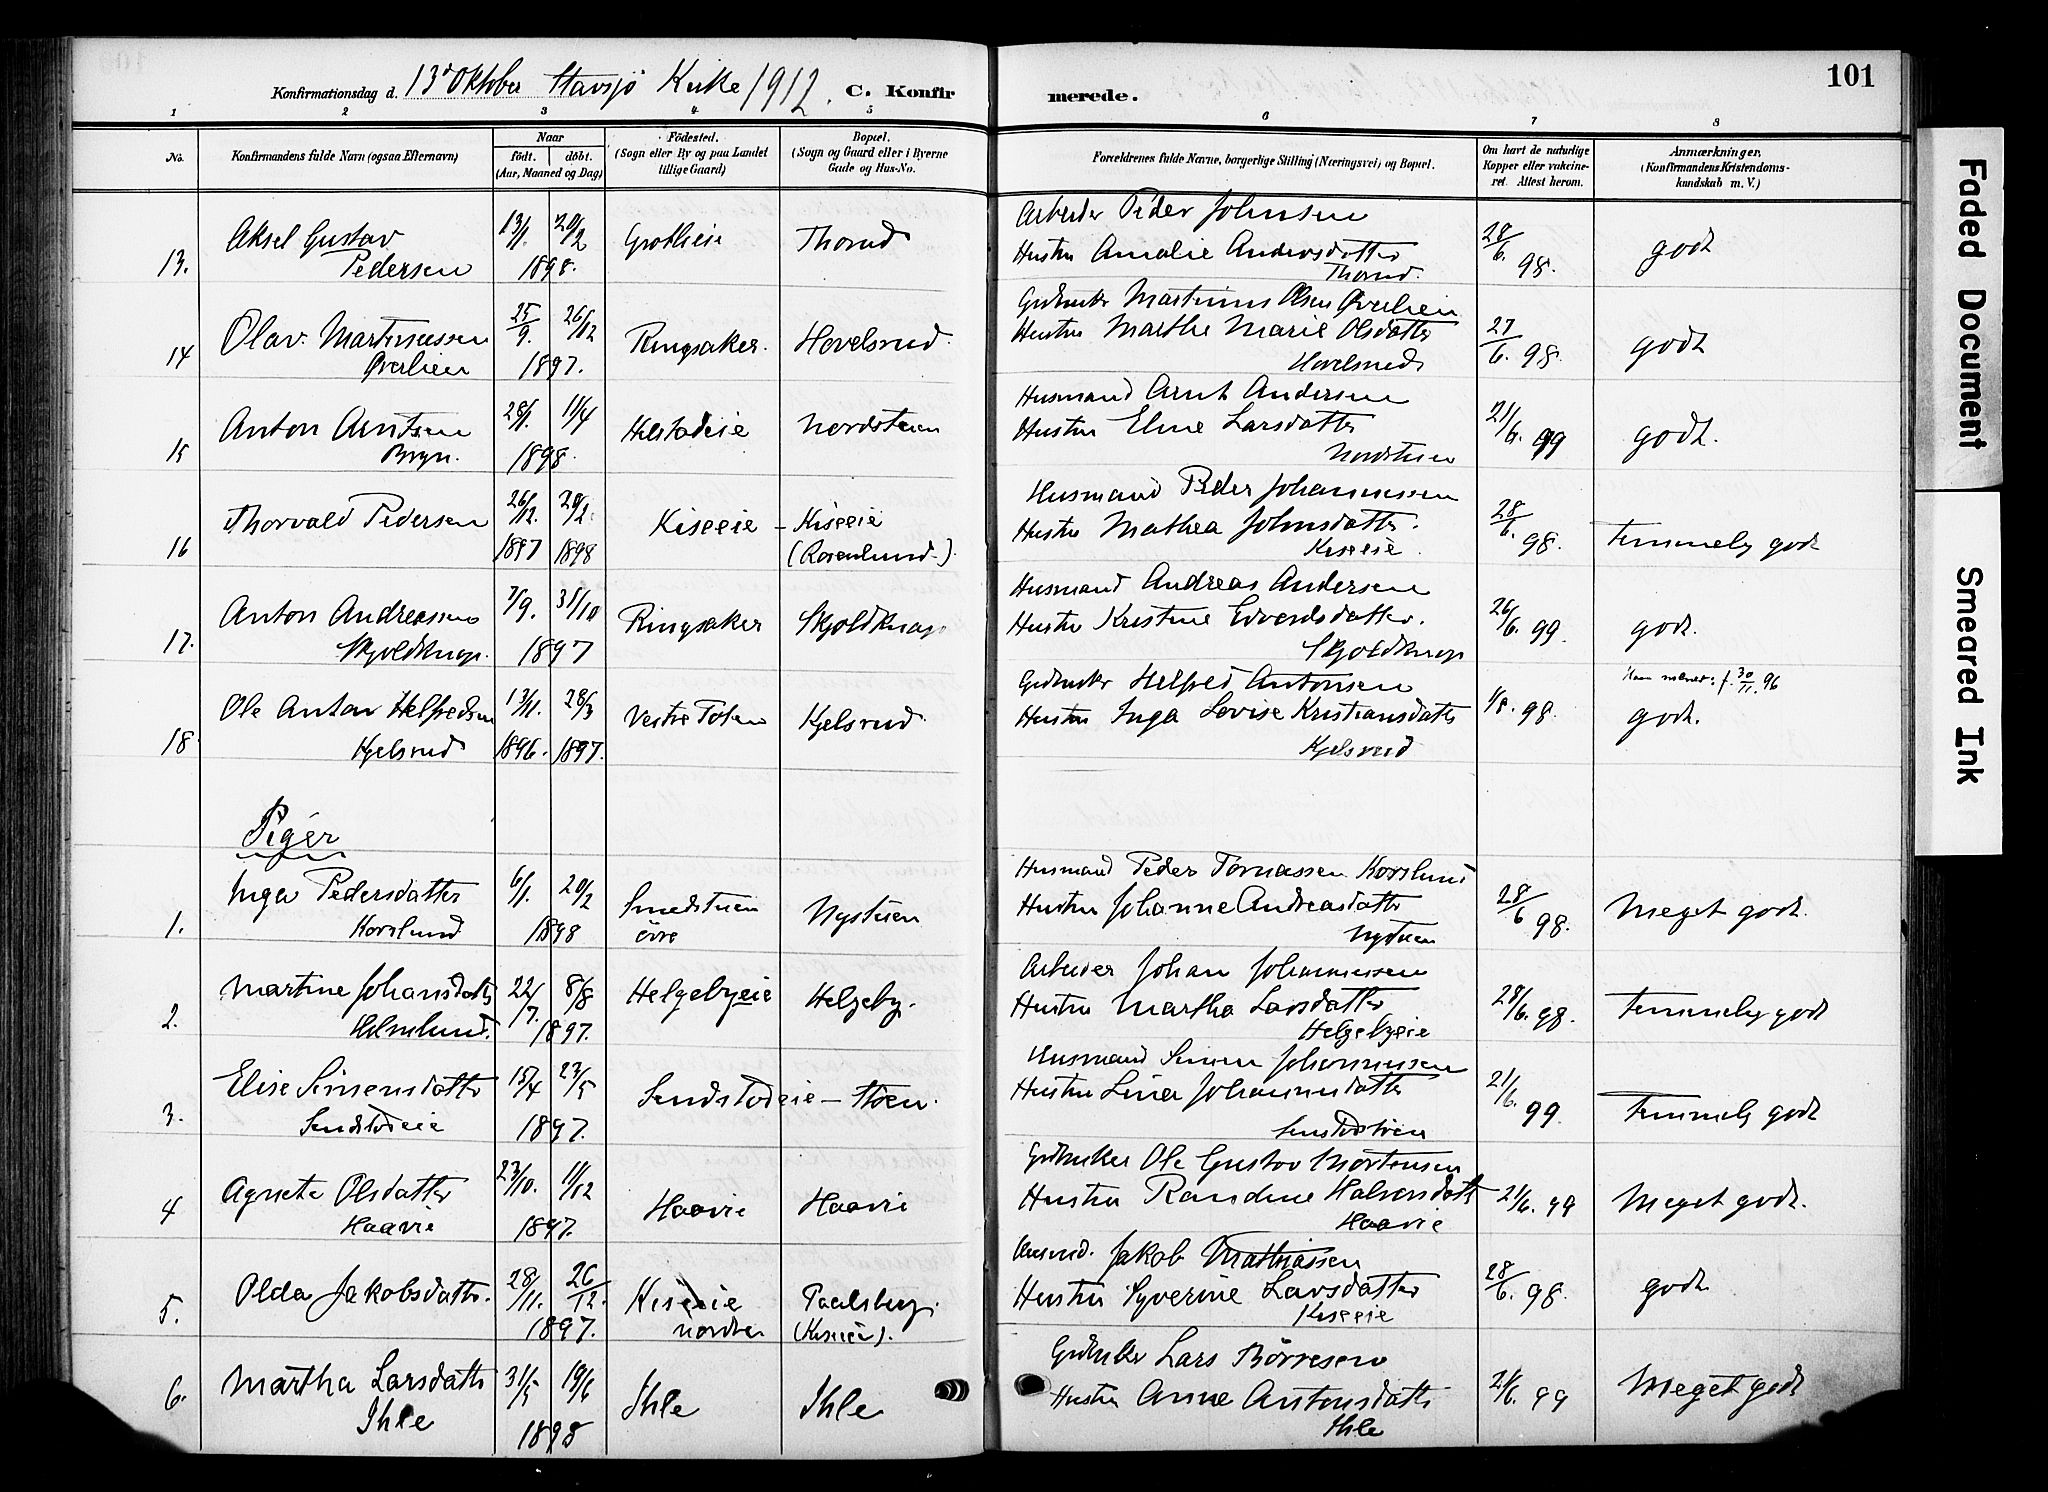 101
Konfirmationsdag d. 13d Oktober Stavsjø Kirke 1912. C. Konfir merede.
1 2 3 4 5 6 7 8
No. Konfirmandens fulde Navn (ogsaa Efternavn) Naar Födested. Bopæl. Forældrenes fulde Navne, borgerlige Stilling (Næringsvei) og Bopæl. Om havt de naturlige Anmærkninger,
födt. döbt. (Sogn eller By og paa Landet (Sogn og Gaard eller i Byerne Kopper eller vakcine- (Konfirmandens Kristendoms-
(Aar, Maaned og Dag) tillige Gaard) Gade og Hus-No. ret. Attest herom. kundskab m. V.)
Arbeider Peder Johnsen
13. Aksel Gustav 13/1. 20/2 Thorud Hustru Amalie Andersdatter 28/6. 98. godt
Pedersen 1898. Thorud.
Gdbruker Martinius Olsen Øverlien
14 Olav Martinussen 25/9. 26/12 Ringsaker. Hovelsrud. Hustru Marthe Marie Olsdatter 27/6. 98. godt
Øverlien 1897. Hovelsrud
Husmand Arnt Andersen
15 Anton Arntsen 28/1. 11/4 Nordstuen Hustru Eline Larsdatter 21/6. 99 godt.
Bryn. 1898. Nordstuen
Husmand Peder Johannessen
16 Thorvald Pedersen 26/12. 20/2. Kiseeie – Kiseeie Hustru Mathea Johnsdatter. 28/6. 98. Temmelig godt
1897 1898 (Rosenlund.). Kiseeie.
Husmand Andreas Andersen
17. Anton Andreassen 7/9. 31/10 Ringsaker Skjoldknap Hustru Kristine Edvardsdatter. 26/6. 99. godt.
Skjoldknap. 1897 Skjoldknap
Gdbruker Helfred Antonsen f. 30/11. 96
18 Ole Anton Helfredsen 13/11. 28/3 Vestre Toten Kjelsrud. Hustru Inga Lovise Kristiansdatter 1/8. 98. godt.
Kjelsrud 1896. 1897. Kjelsrud
Piger
Husmand Peder Tomassen Korslund
1. Inga Pedersdatter 6/1. 20/2 Smedstuen Nystuen Hustru Johanne Andreasdatter 28/6 98. Meget godt.
Korslund 1898 øvre Nystuen
Arbeider Johan Johannessen
2. Martine Johansdatter 22/7. 8/8 Helgebyeie Helgeby. Hustru Martha Larsdatter 28/6. 98. Temmelig godt
Holmlund. 1897. Helgebyeie
Husmand Simen Johannessen
3. Elise Simensdatter 15/4 23/5 Sundstodeie – Støen. Hustru Lina Johannesdatter 21/6. 99. Temmelig godt
Sundstodeie 1897.
Gdbruker Ole Gustav Mortensen
4 Agnete Olsdatter 23/10. 11/12 Haavie Haavie Hustru Randine Halvorsdatter 21/6. 99 Meget godt.
Haavie 1897. Haavie
Husmd. Jakob Mathiassen
5. Olda Jakobsdatter. 28/11. 26/12. Kiseeie Paalsberg. Hustru Syverine Larsdatter 28/6. 98. godt
1897. nordre (Kiseeie). Kiseeie
Gdbruker Lars Børresen
6. Martha Larsdatter 31/5 19/6 Ihle Ihle Hustru Anne Antonsdatter 21/6. 99 Meget godt
Ihle 1898 Ihle
Faded Document
Smeared Ink